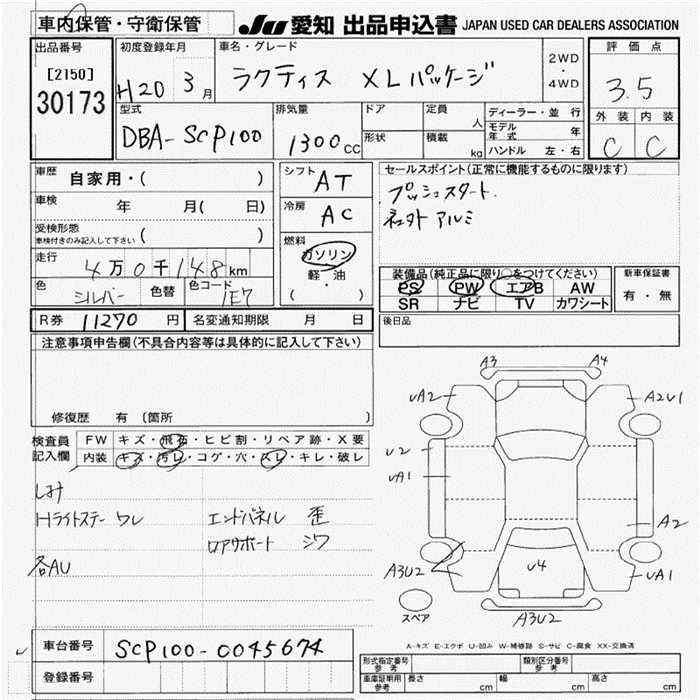 車内保管・守衛保管
JU 愛知 出品申込書 JAPAN USED CAR DEALERS ASSOCIATION
出品番号
[2150]
30173
初度登録年月
H20 3月
車名・グレード
ラクティス XLパッケージ
2WD
・
4WD
評価点
3.5
外装 内装
C C
型式
DBA-SCP100
排気量
1300cc
ドア
形状
定員
人
積載
kg
ディーラー・並行
モデル年式 年
ハンドル 左・右
車歴 自家用・( )
車検 年 月( 日)
受検形態
車検付きのみ記入して下さい ( )
走行 4万0千148km
色 シルバー 色替 色コード 1E7
シフト AT
冷房 AC
燃料
ガソリン
軽・油
( )
セールスポイント(正常に機能するものに限ります)
プッシュスタート.
社外アルミ
装備品(純正品に限り○をつけてください)
PS PW エアB AW
SR ナビ TV カワシート
新車保証書
有・無
R券 11270円 名変通知期限 月 日
後日品
注意事項申告欄(不具合内容等は具体的に記入して下さい)
修復歴 有 (箇所 )
検査員記入欄
FW キズ・飛石・ヒビ割・リペア跡・X要
内装 キズ・汚レ・コゲ・穴・スレ・キレ・破レ
しみ
Hライトステー ワレ エンドパネル 歪
ロアサポート シワ
各AU
A3 A4
UA2 A2U1
U2
UA1
A2
A3U2 U4 UA1
スペア
A3U2
A-キズ E-エクボ U-凹み W-補修跡 S-サビ C-腐食 XX-交換済
車台番号 SCP100-0045674
登録番号
型式指定番号 参考
類別区分番号 参考
車庫証明用 参考 長さ cm 幅 cm 高さ cm